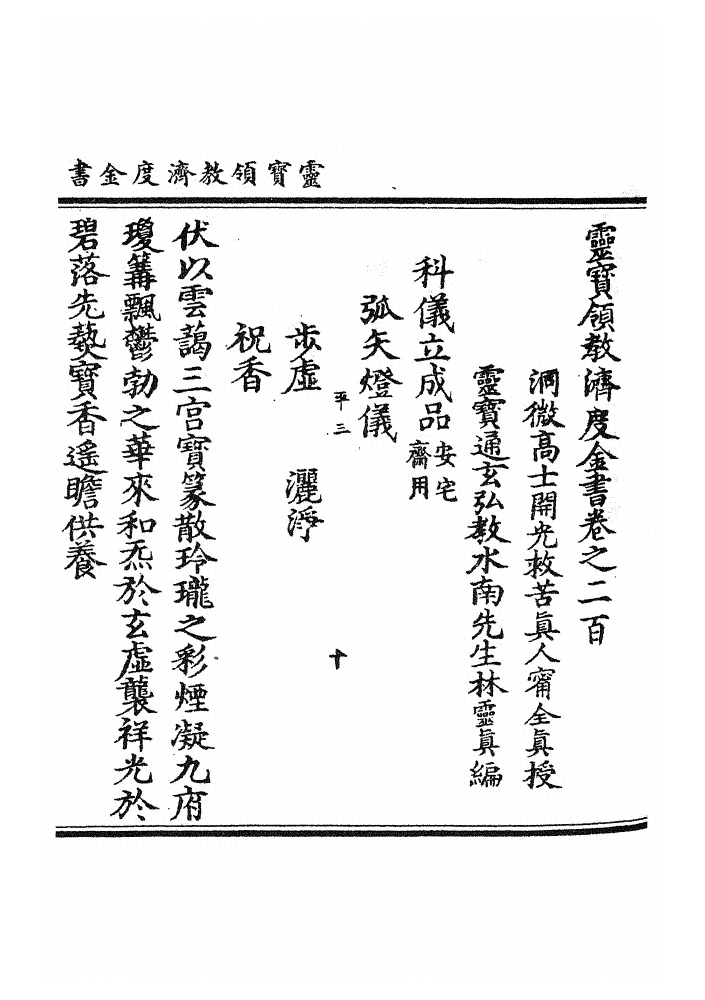 靈寶領教濟度金書
靈寶領教濟度金書卷之二百
洞微高士開光救苦眞人甯全眞授
靈寶通玄弘教水南先生林靈眞編
科儀立成品安宅齋用
弧矢燈儀
平三 十
步虛 灑淨
祝香
伏以雲藹三宮寶篆散玲瓏之彩煙凝九府
瓊篝飄鬱勃之華來和炁於玄虛襲祥光於
碧落先爇寶香遙瞻供養